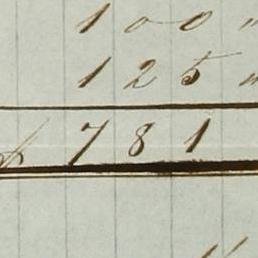 100 "
125 "
$ 781